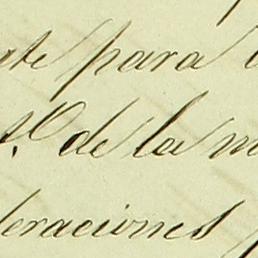 te para
de la m
eraciones